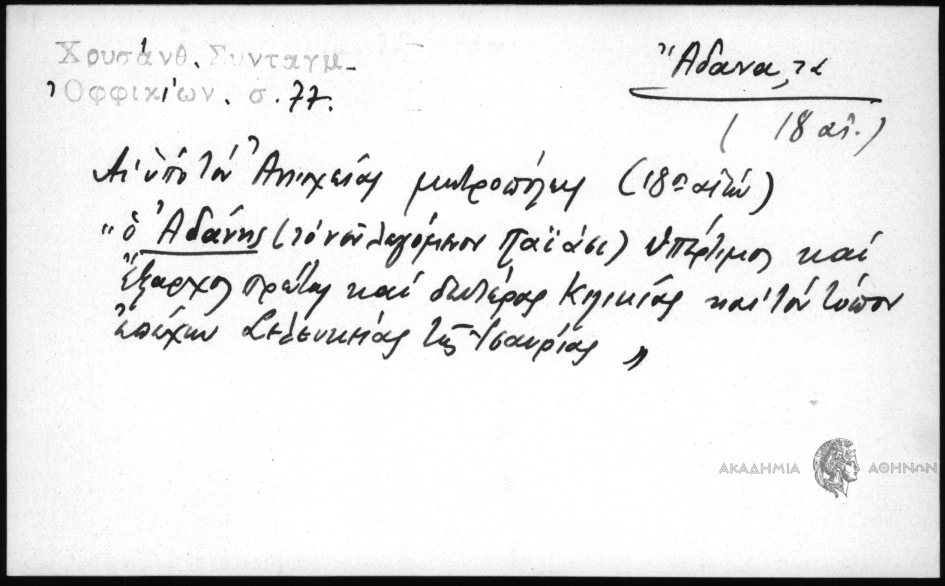 Χρυσάνθ. Συνταγμ.
Ὀφφικίων. σ. 77.
Ἄδανα, τὰ
(18 αἰ.)
Αἱ ὑπὸ τὸν Ἀντιοχείας μητροπόλεις (18ου αἰῶν)
"ὁ Ἀδάνης (τὸ νῦν λεγόμενον Παϊάσι) ὑπέρτιμος καὶ
ἔξαρχος πρώτης καὶ δευτέρας Κιλικίας καὶ τὸν τόπον
ἐπέχων Σελευκείας τῆς Ἰσαυρίας"
ΑΚΑΔΗΜΙΑ ΑΘΗΝΩΝ